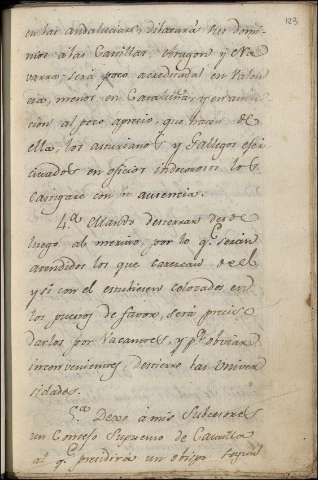 123
en las andalucias, dilatará sus domi-
nios a las Castillas. Aragon y Na
varra; será poco acreditada en Valen
cia, menos en Cataluña, y en aten-
cion al poco aprecio, que hacen de
ella, los asturianos y Gallegos exer
citados en oficios indecorosos los
castigaré con su ausencia.
4.ª Mando desterrar desde
luego al merito, por lo q.e serán
atendidos los que carezcan de el
y si con el estubieren colocados en
los puestos de favor, será preciso
darlos por vacantes, y p.a obviar
inconvenientes, destierro las Univer
sidades.
5.ª Dexo a mis Subcesores
un Consejo Supremo de Castilla
al q.e presidirá un obispo